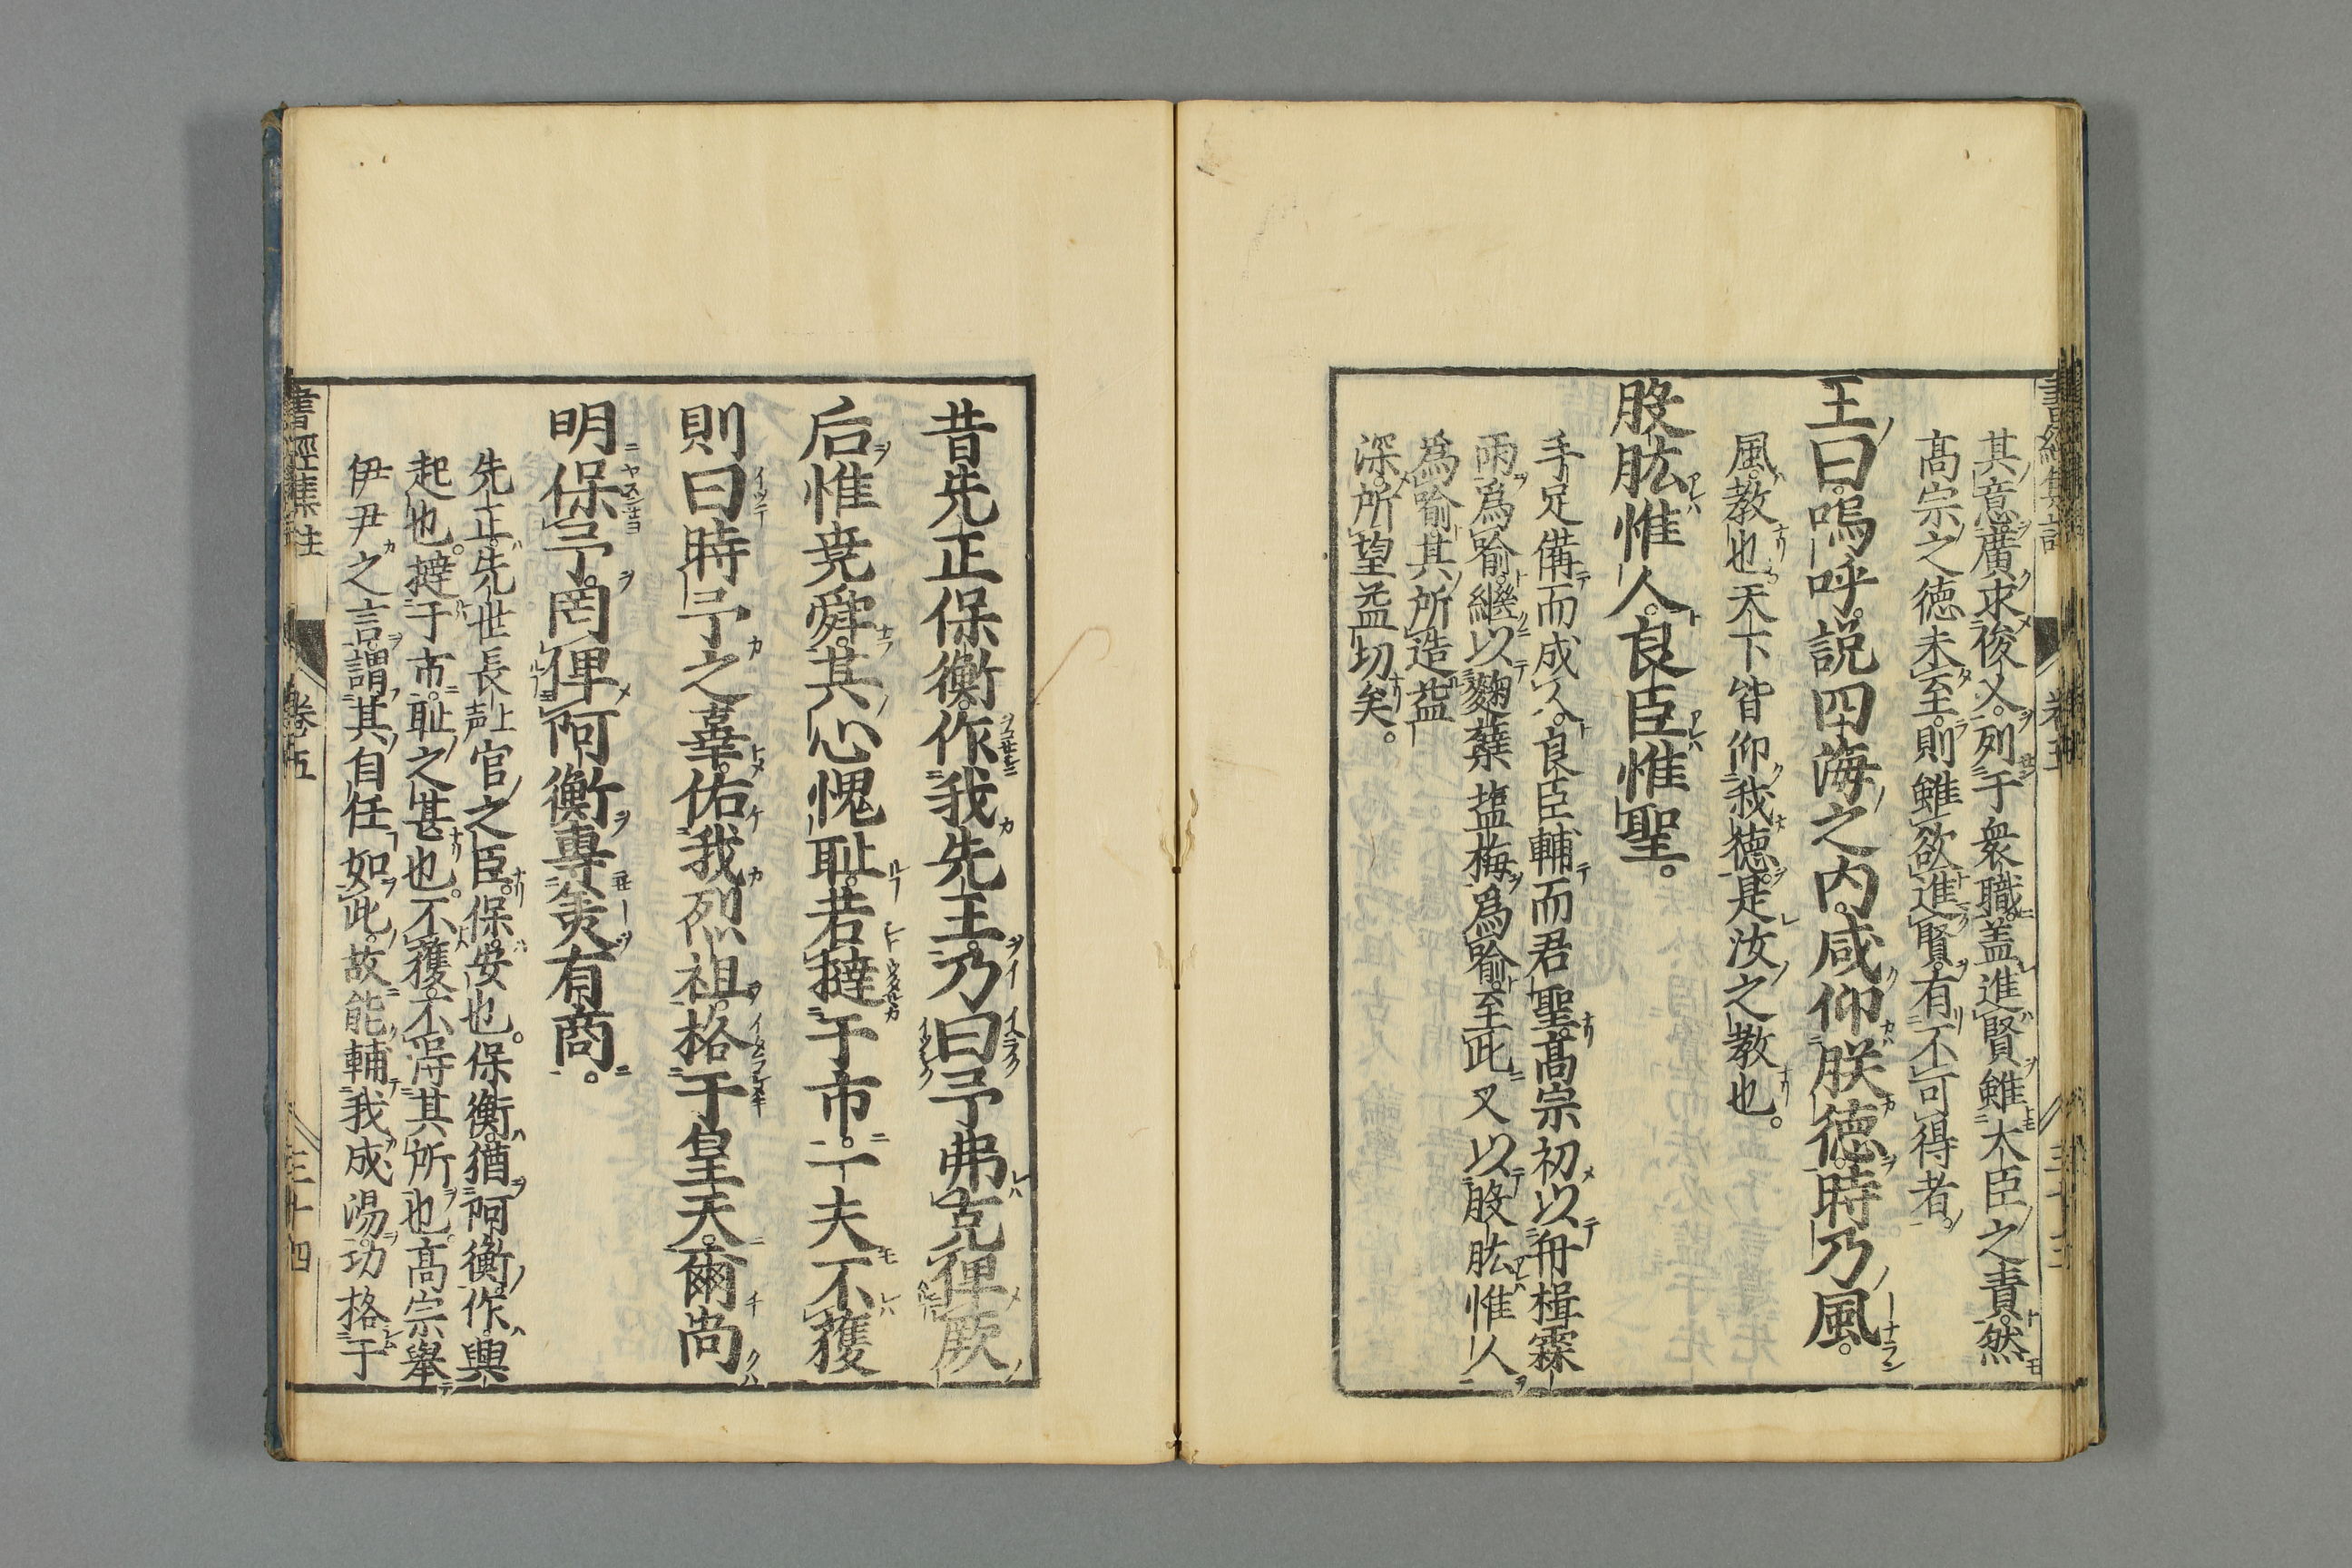 其意廣求俊乂。列于衆職。盖進賢雖大臣之責。然
髙宗之徳未至。則雖欲進賢。有不可得者。
王曰。嗚呼。説四海之内。咸仰朕徳。時乃風。
風。教也天下皆仰我徳。是汝之教也。
股肱惟人。良臣惟聖。
手足備而成人。良臣輔而君聖。髙宗初以舟楫霖
雨爲喻。繼以麴糵塩梅爲喻。至此又以股肱惟人
為喻。其所造益
深。所望益切矣。
書經集註
卷五
三十三
昔先正保衡。作我先王。乃曰予弗克俾厥
后惟尭舜。其心愧耻。若撻于市。一夫不獲
則曰時予之辜。佑我烈祖。格于皇天。爾尚
明保予。罔俾阿衡專羙有商。
先正。先世長上声官之臣。保。安也。保衡。猶阿衡。作。興
起也。撻于市。耻之甚也。不獲。不得其所也。髙宗舉
伊尹之言。謂其自任如此。故能輔我成湯。功格于
書經集註
卷五
三十四